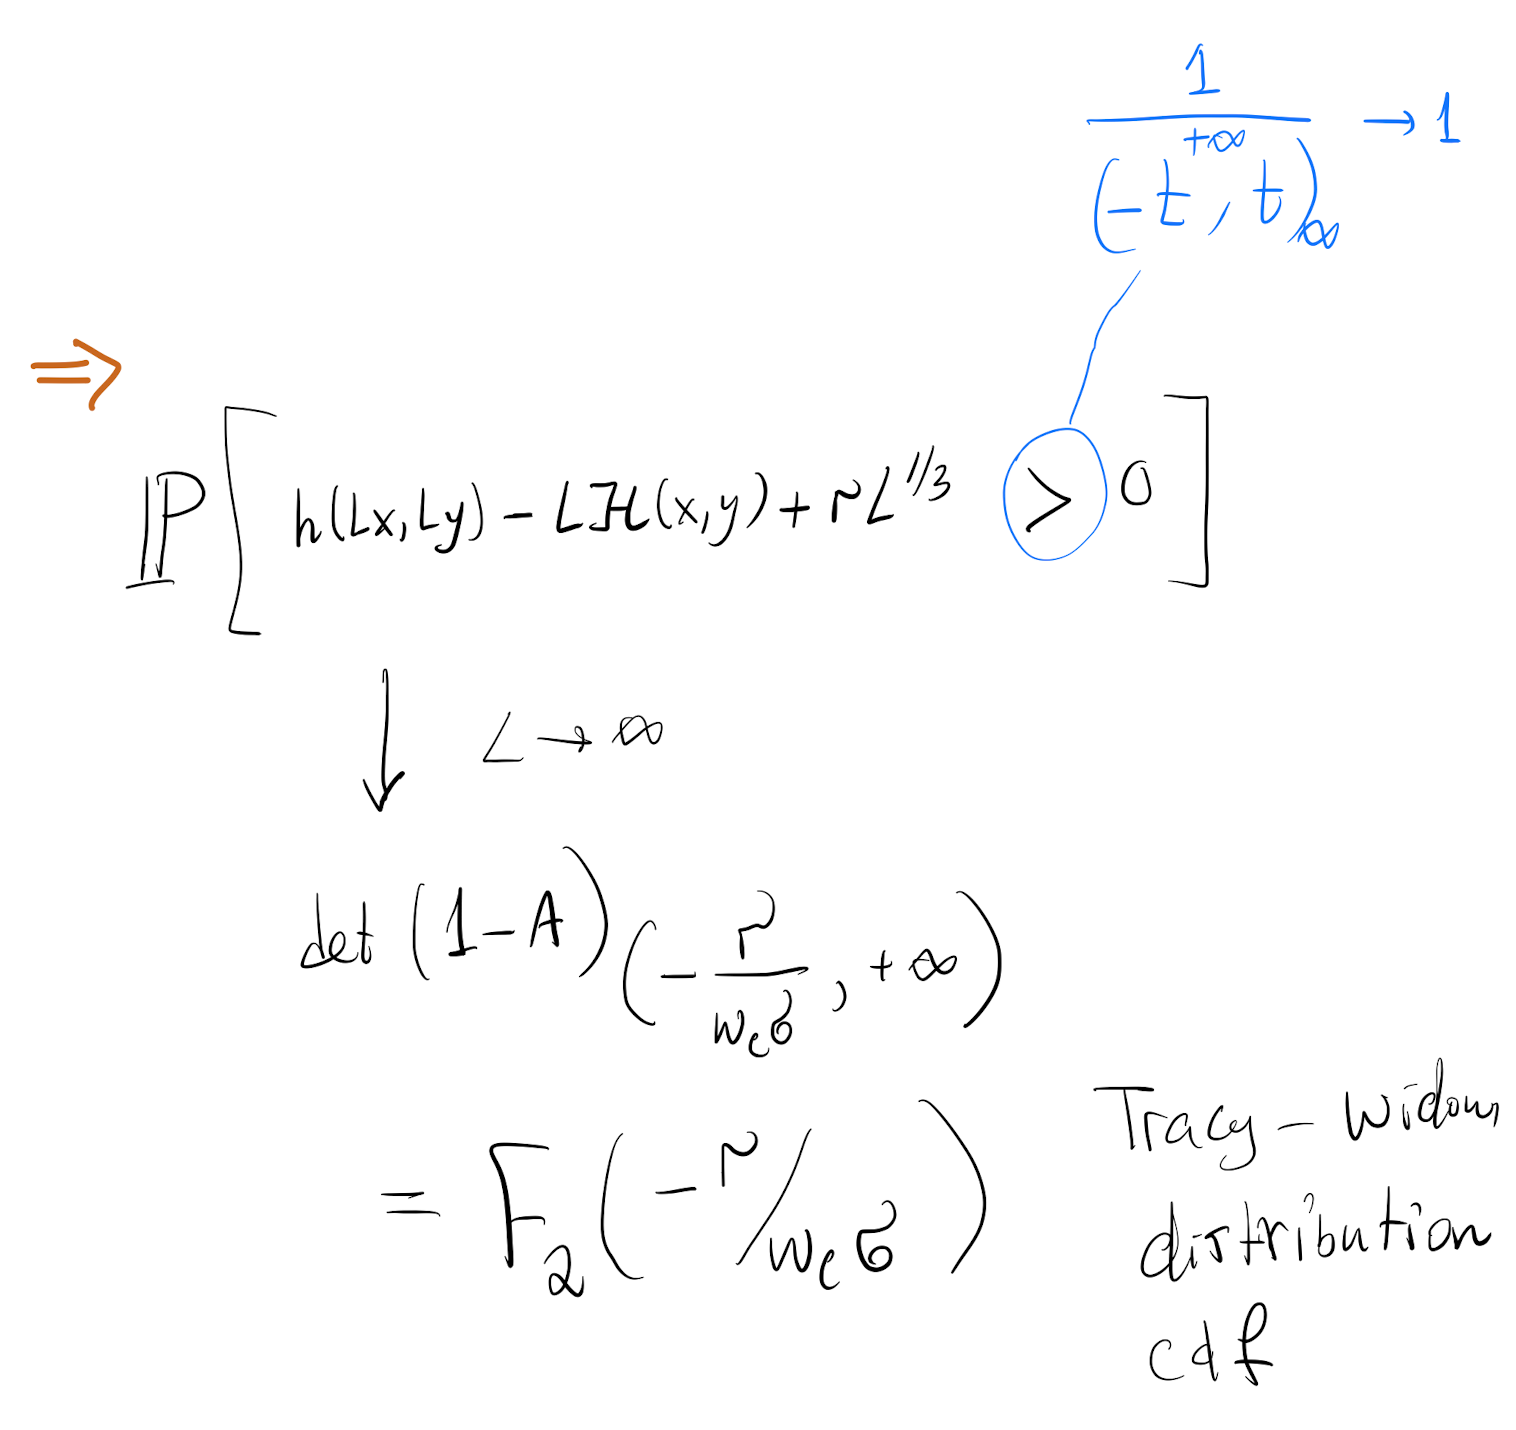 1 / (-t^{+∞}, t)_∞ → 1
⇒
ℙ[ h(Lx, Ly) - Lℋ(x,y) + rL^{1/3} > 0 ]
↓ L → ∞
det (1 - A)_{(-r/(w_cσ), +∞)}
= F_2(-r/w_cσ) Tracy-Widom
distribution
cdf